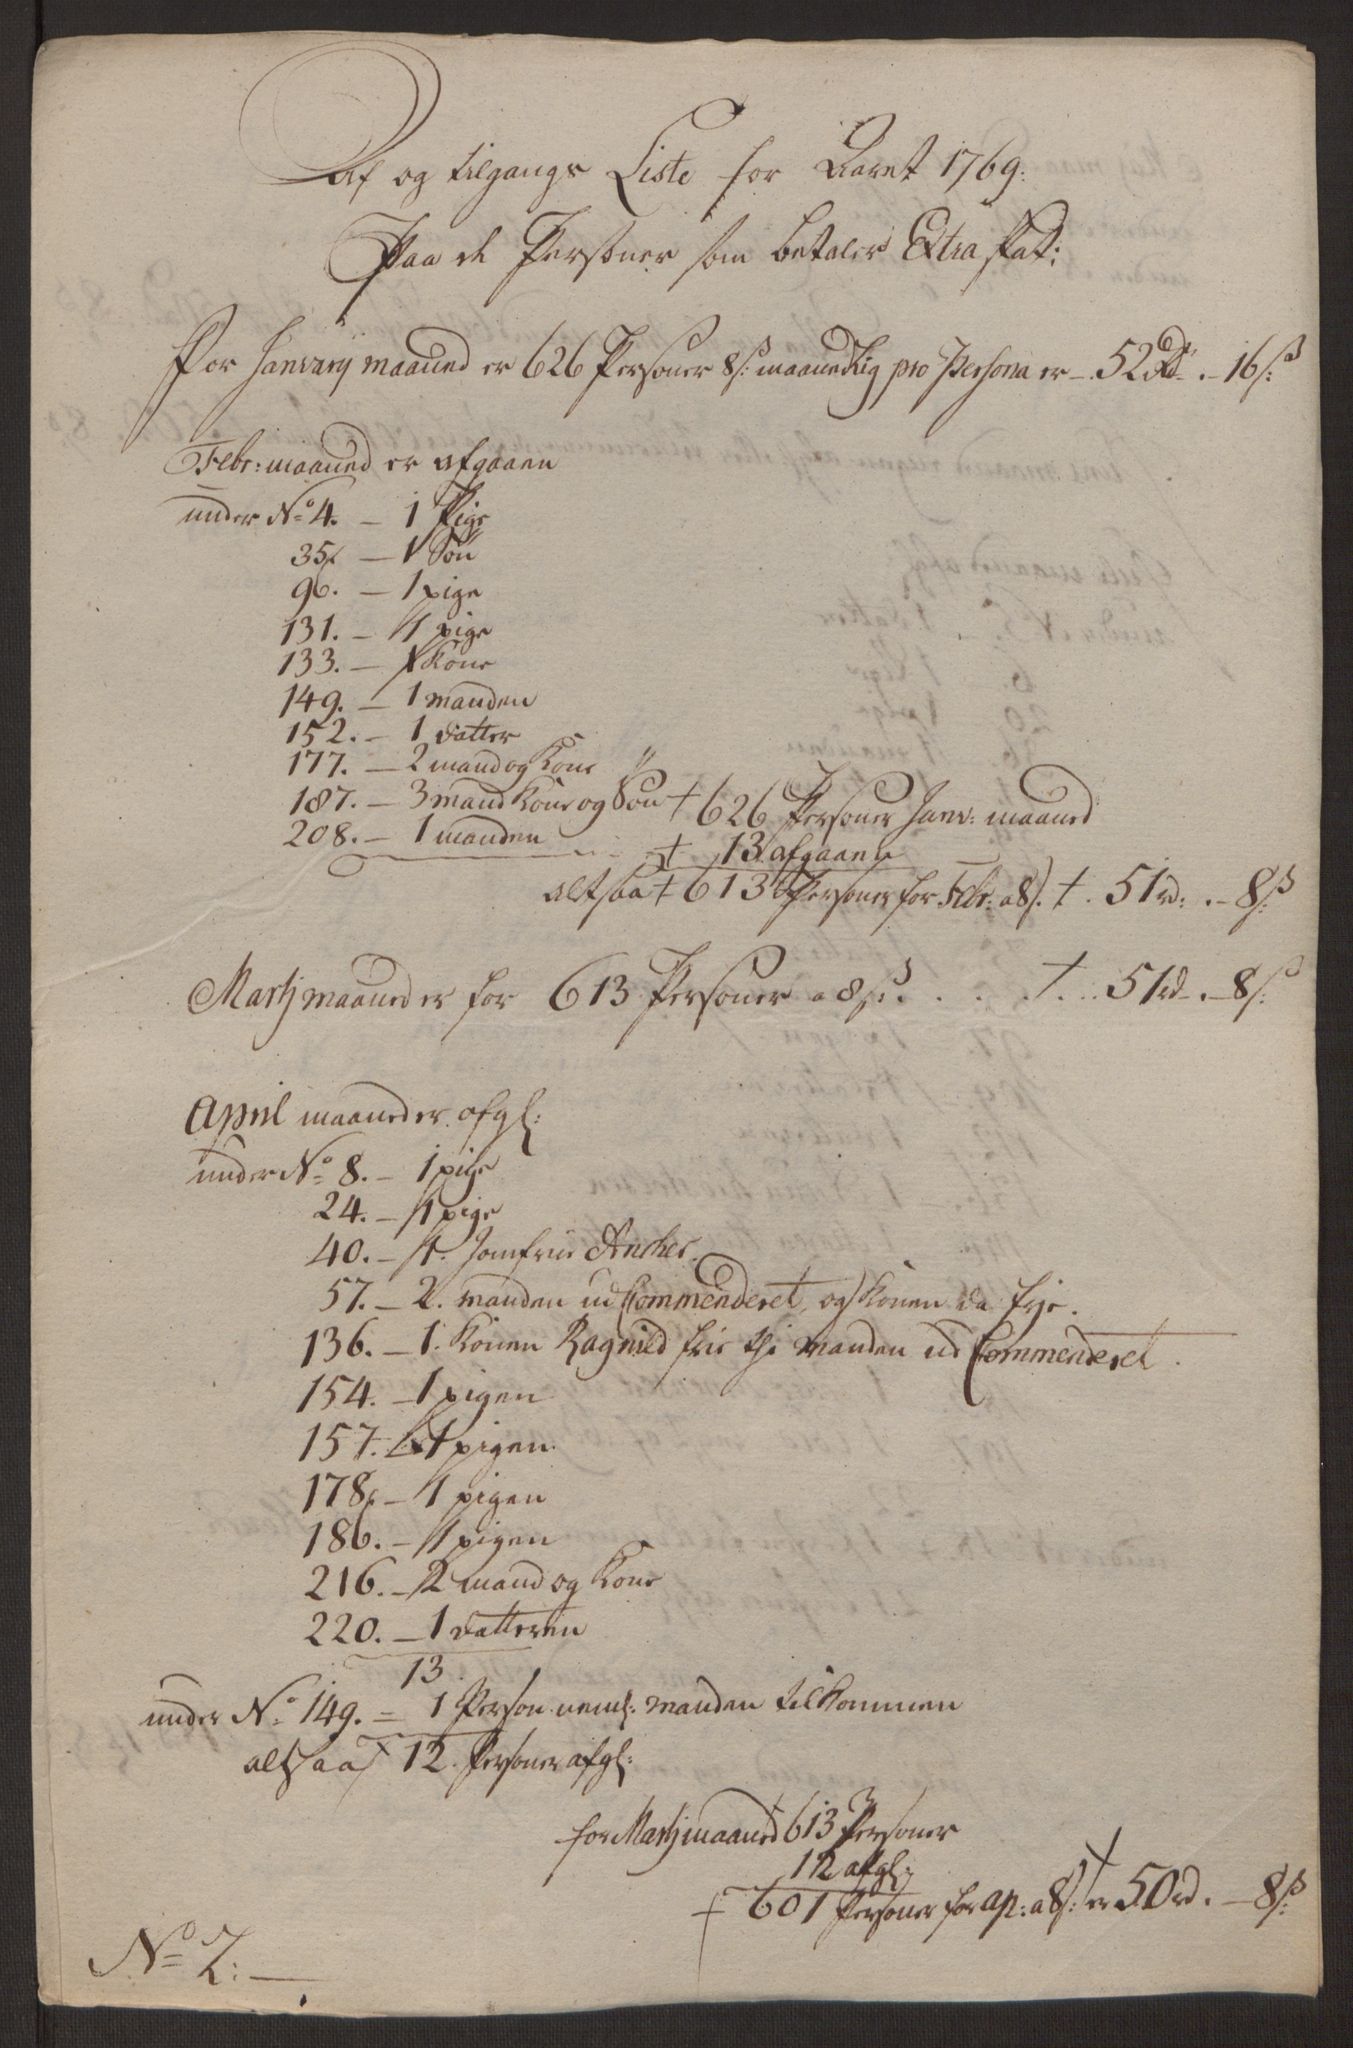 Af og tilgangs Liste for Aaret 1769.
Paa de Personer som betaler Extra skat:
For Janvarij maaned er 626 Personer 8 s: maanedlig pro Persona er – 52 Rd – 16 s:
Febr: maaned er afgaaen
under No 4. – 1 Pige
35. – 1 Søn
96. – 1 pige
131. – 1 pige
133. – 1 Kone
149. – 1 manden
152. – 1 datter
177. – 2 mand og Kone
187. – 3 mand Kone og Søn + 626 Personer Janv: maaned
208. – 1 manden + 13 afgaaen
altsaa + 613 Personer for Febr: a 8 s. + . 51 rd: . – 8 s:
Martj maaned er for 613 Personer a 8 s: . . . . +. .. 51 rd – . – 8 s:
April maaned er afgl:
under No 8. – 1 pige
24. – 1 pige
40. – 1. Jomfrue Ancher.
57. – 2. manden ud Commenderet, og Konen da frje.
136. – 1. Konen Ragnild frie thi manden ud Commenderet.
154. – 1 pigen
157. – 1 pigen.
178. – 1 pigen
186. – 1 pigen
216. – 2 mand og Kone
220. – 1 datteren
13
under No 149. = 1 Person neml: manden tilkommen
altsaa 12. Personer afgl:
for Martj maaned 613 Personer
12 afgl:
+ 601 Personer for ap: a 8 s: er 50 rd. – 8 s:
No 2: –